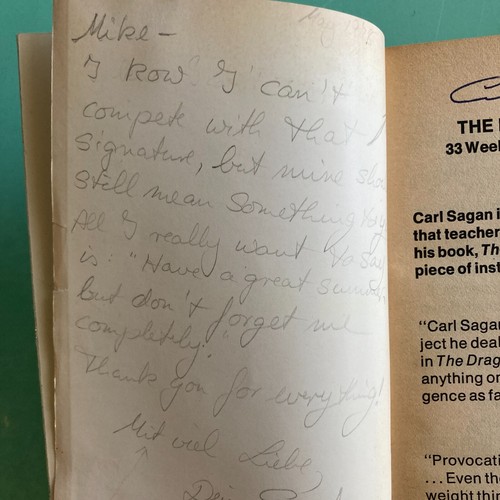 May 1978
Mike-
I know I can't
compete with that
signature, but mine
still mean something to you
All I really want to say
is: "Have a great summer,
but don't forget me
completely."
Thank you for everything!
Mit viel Liebe,
THE
33 Week
Carl Sagan i
that teacher
his book, Th
piece of inst
"Carl Sagan
ject he deal
in The Drag
anything or
gence as fa
"Provocati
... Even th
weight thin